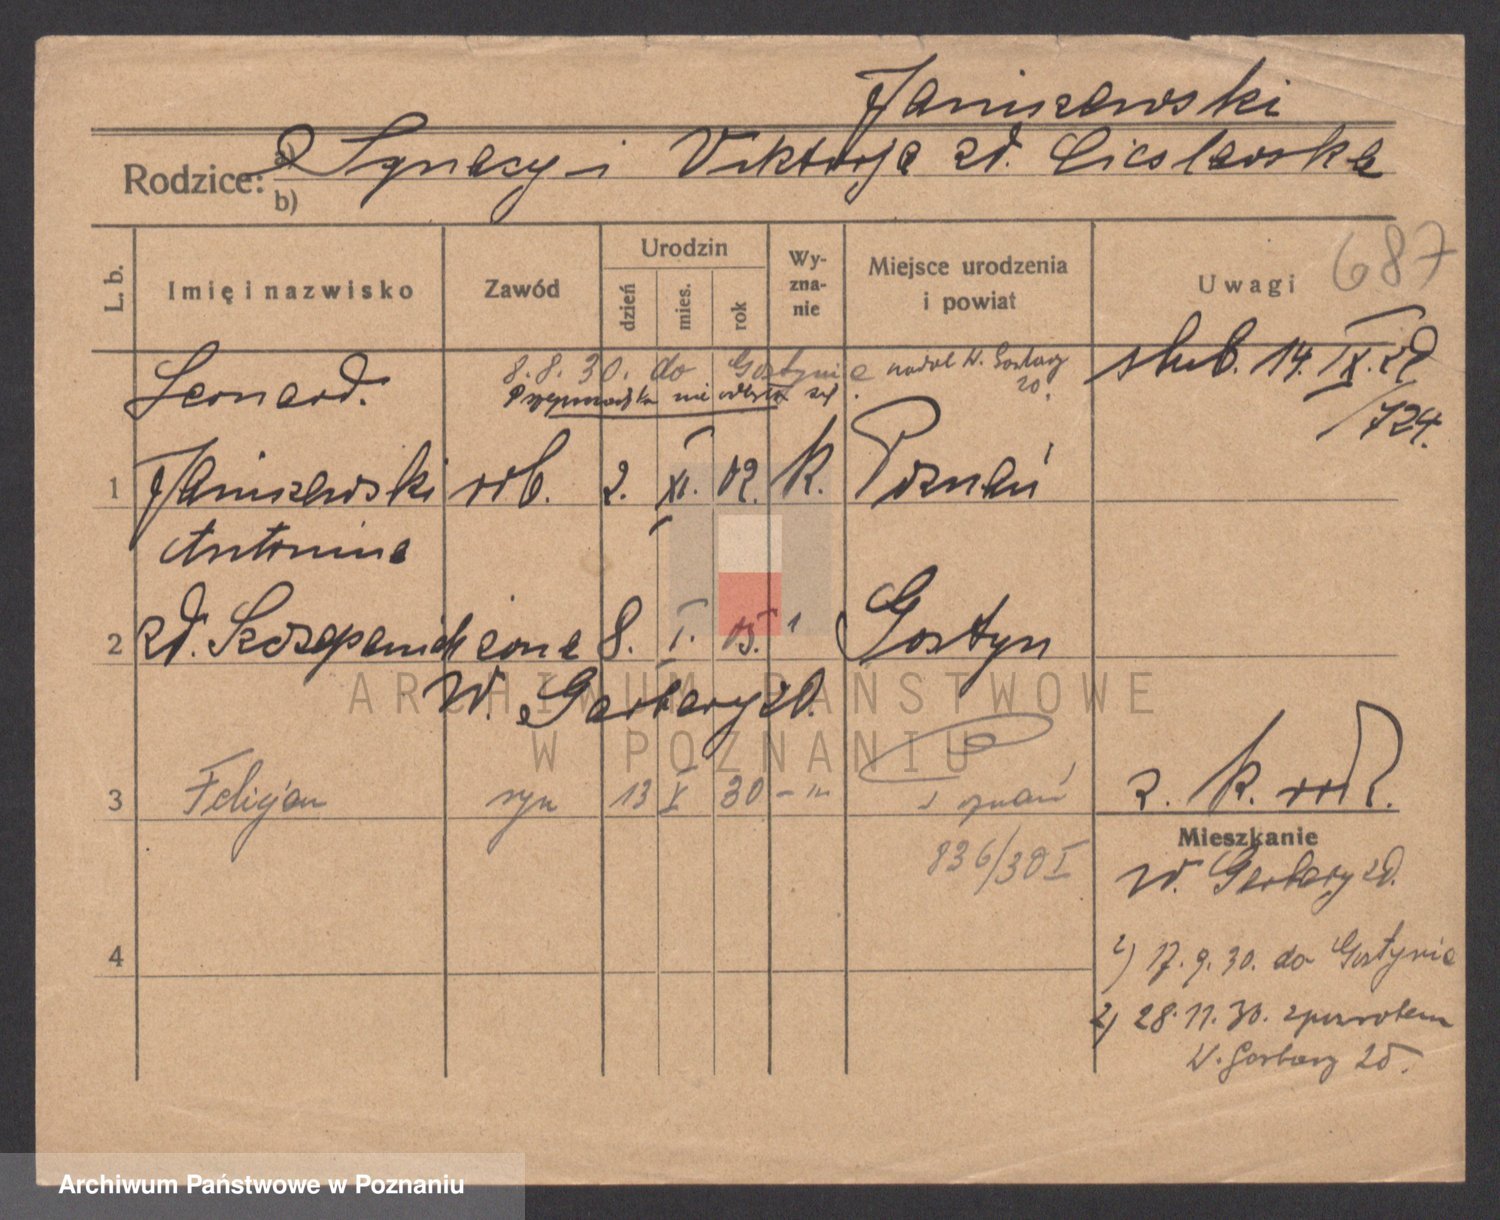 Janiszewski
Rodzice: a) Ignacy i Viktorja zd. Cieslawska
b)
687
L. b.
Imię i nazwisko
Zawód
Urodzin
dzień
mies.
rok
Wy-
zna-
nie
Miejsce urodzenia
i powiat
Uwagi
8.8.30. do Gostynia nadal W. Garbary
20.
ślub. 14. IX. 29
/724.
Leonard
1 Janiszewski rob. 2. XI. 02. k. Poznań
Antonina
2 zd. Szczepaniak żona 8. I. 05. " Gostyn
W. Garbary 20.
3 Felicjan syn 13 X 30 - " Poznań
z. k. rod.
836/30 I
Mieszkanie
W. Garbary 20.
4
2) 17.9.30. do Gostynia
2) 28.11.30. zpowrotem
W. Garbary 20.
ARCHIWUM PAŃSTWOWE
W POZNANIU
Archiwum Państwowe w Poznaniu